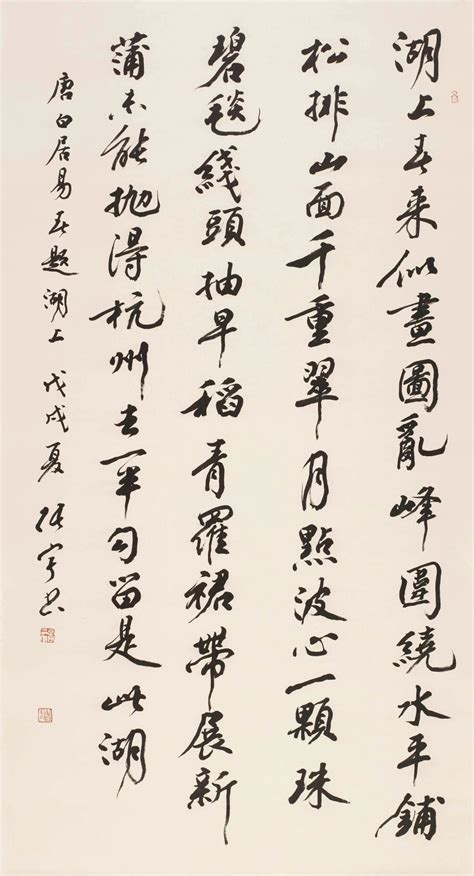 湖上春来似畫圖亂峰圍繞水平鋪
松排山面千重翠月點波心一顆珠
碧毯綫頭抽早稻青羅裙帶展新
蒲未能抛得杭州去一半勾留是此湖
唐白居易春題湖上 戊戌夏 书